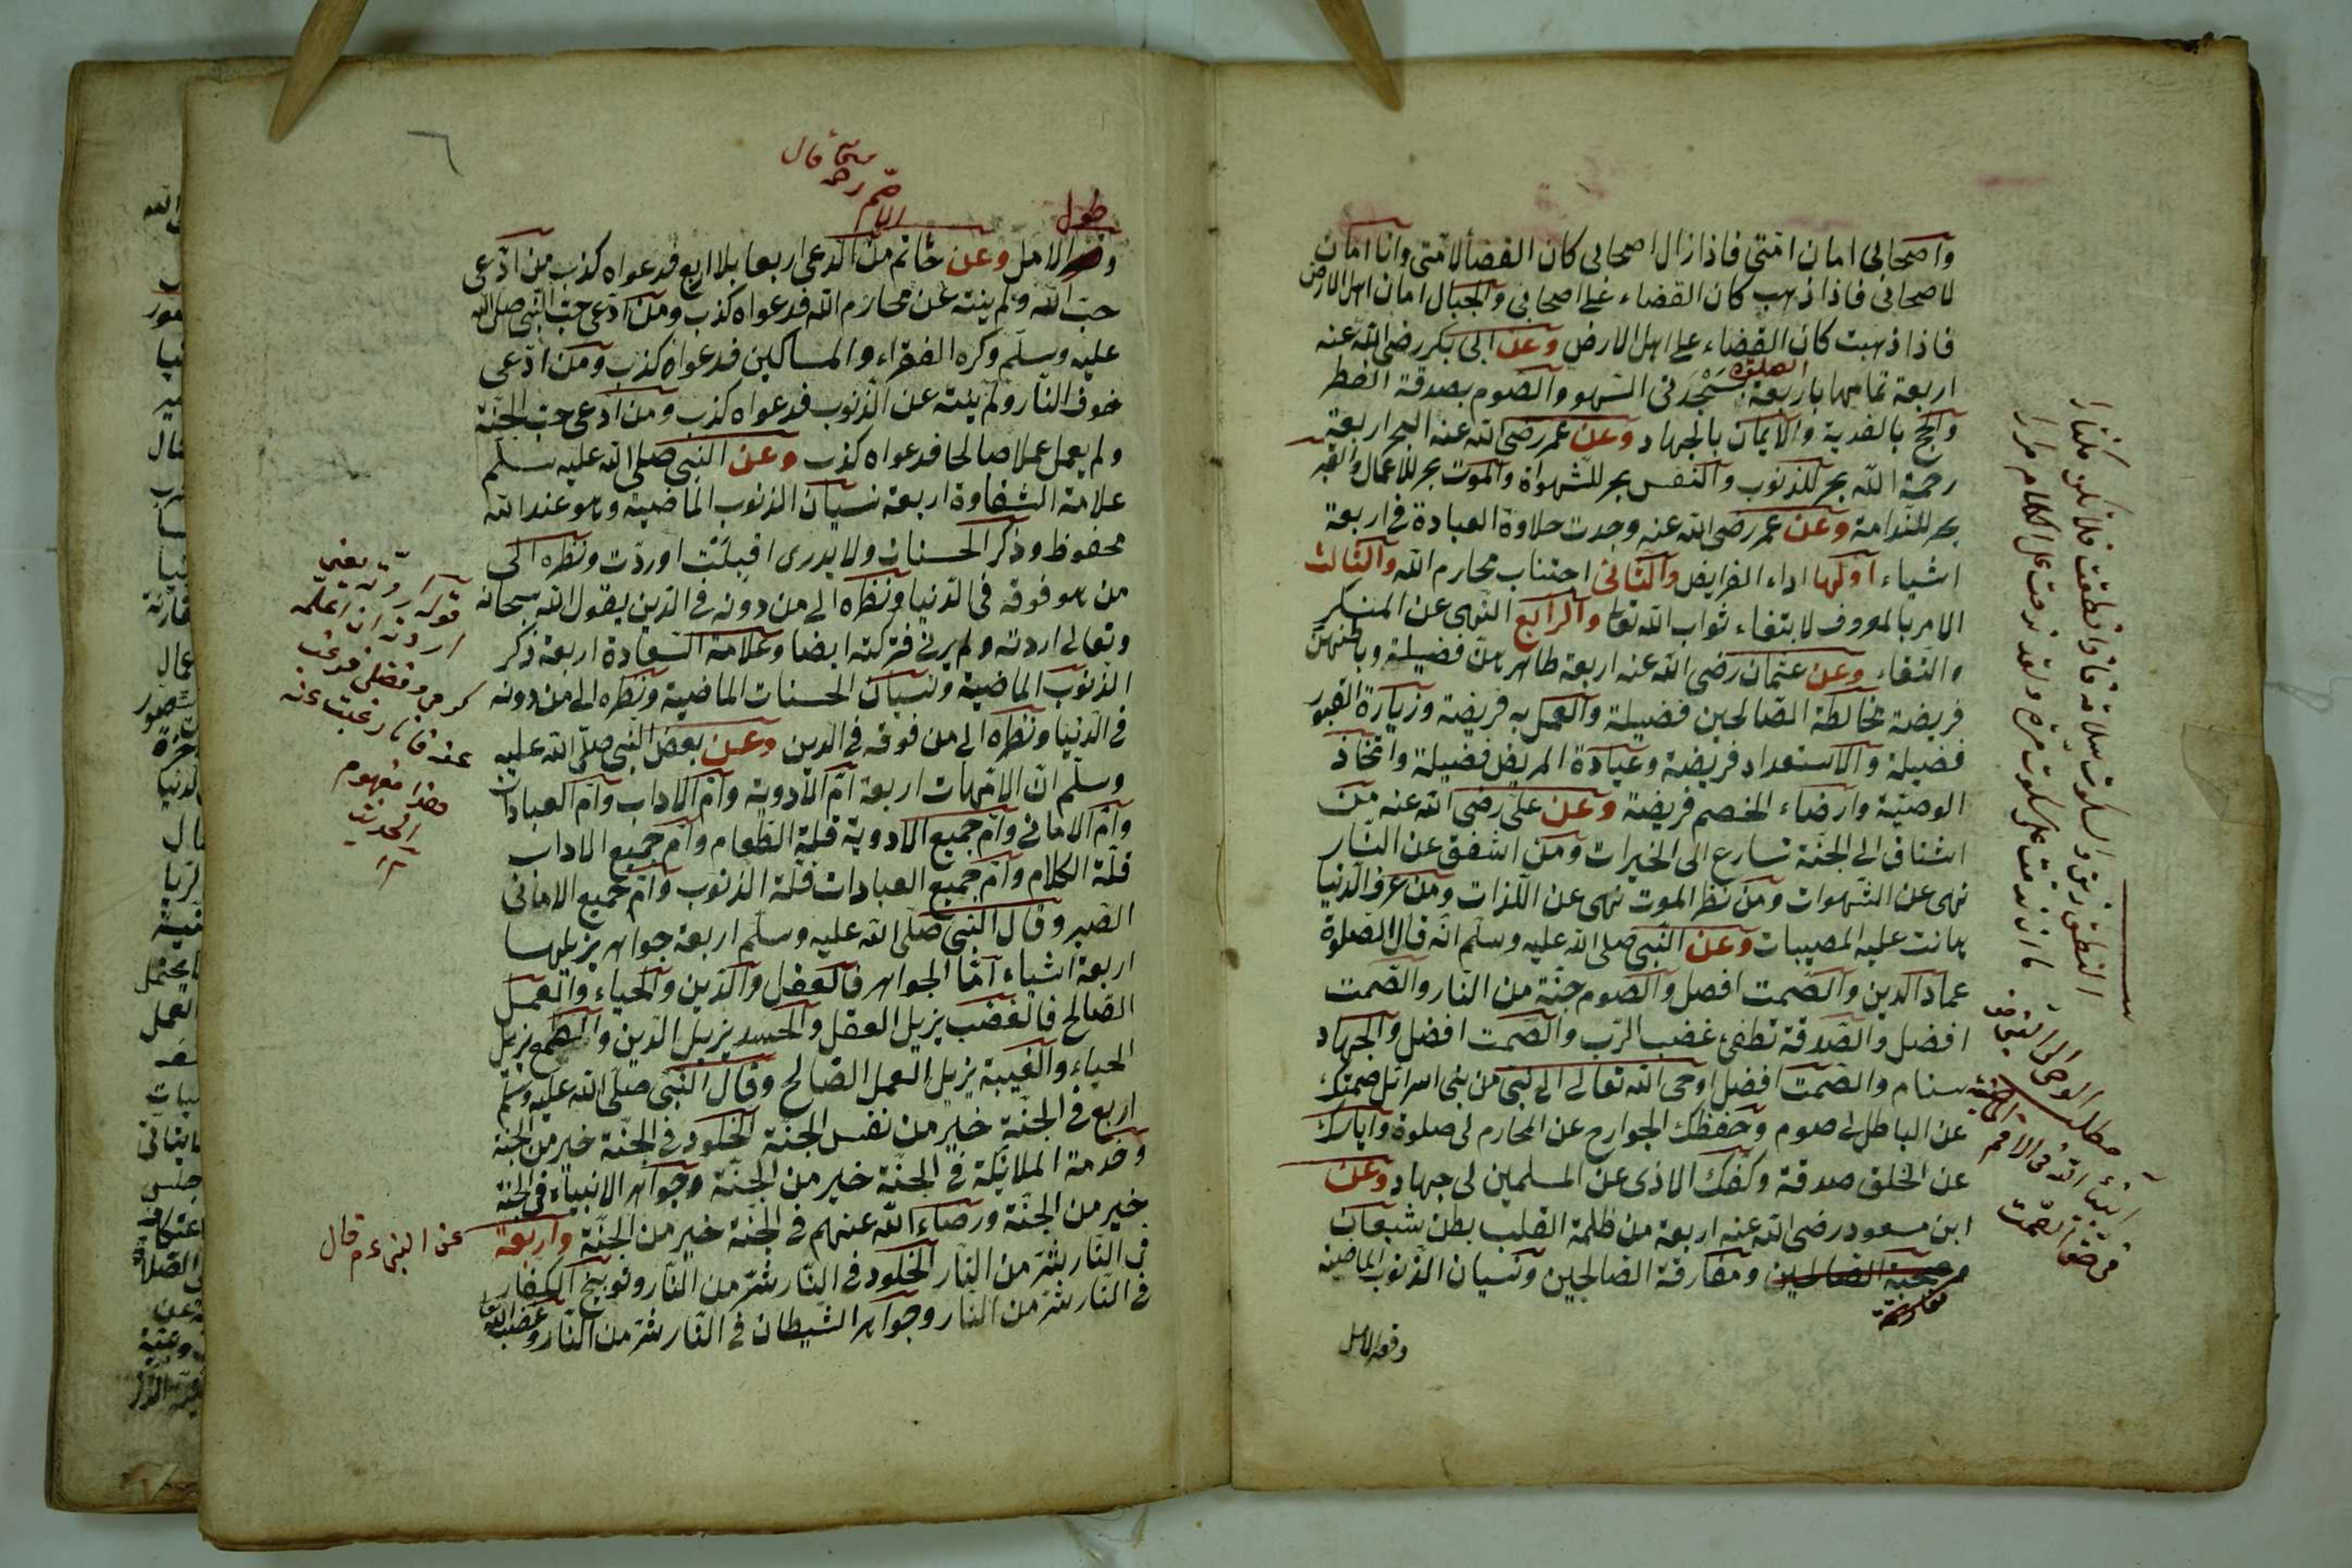 واصحابى امان امتى فاذا زال اصحابى كان القضأ لامتى وانا امان
لاصحابى فاذا ذهب كان القضاء على اصحابى والجبال امان اهل الارض
فاذا ذهبت كان القضاء على اهل الارض وعن ابى بكر رضى الله عنه
اربعة تمامها باربعة الصلوة بسجدتى السهو والصوم بصدقة الفطر
والحج بالفدية والايمان بالجهاد وعن عمر رضى الله عنه البحر اربعة
رحمة الله بحر للذنوب والنفس بحر للشهواة والموت بحر للاعمال والقبر
بحر للندامة وعن عمر رضى الله عنه وجدت حلاوة العبادة فى اربعة
اشياء اولها اداء الفرايض والثانى اجتناب محارم الله والثالث
الامر بالمعروف لابتغاء ثواب الله تعا والرابع النهى عن المنكر
والتقاء وعن عثمان رضى الله عنه اربعة ظاهرهن فضيلة وباطنهن
فريضة مخالطة الصالحين فضيلة والعمل به فريضة وزيارة القبور
فضيلة والاستعداد فريضة وعيادة المريض فضيلة واتخاذ
الوصية وارضاء الخصم فريضة وعن على رضى الله عنه من
اشتاق الى الجنة تسارع الى الخيرات ومن اشفق عن النار
نهى عن الشهوات ومن نظر الموت نهى عن اللذات ومن عرف الدنيا
هانت عليه المصيبات وعن النبى صلى الله عليه وسلم انه قال الصلوة
عماد الدين والصمت افضل والصوم جنة من النار والصمت
افضل والصدقة تطفئ غضب الرب والصمت افضل والجهاد
سنام والصمت افضل اوحى الله تعالى الى نبى من بنى اسرائل صمتك
عن الباطل لى صوم وحفظك الجوارح عن المحارم لى صلوة واياسك
عن الخلق صدقة وكفك الاذى عن المسلمين لى جهاد وعن
ابن مسعود رضى الله عنه اربعة من ظلمة القلب بطن شبعان
صحبة الظالمين ومفارقة الصالحين ونسيان الذنوب الماضية
مقارنة
وقصر الامل
النطق زين والسكوت سلامة فاذا نطقت فلا تكن مكثارا
ما ان ندمت على سكوت مرة ولقد ندمت على الكلام مرارا
مطلب الوحى الى النبى من
انبياء الله فى الامم الماضية
فى حق الصمت
طول
وقصر الامل وعن حاتم من ادعى اربعا بلا اربع فدعواه كذب من ادعى
الاصم رحمه
قال
حب الله ولم ينته عن محارم الله فدعواه كذب ومن ادعى حب النبى صلى الله
عليه وسلم وكره الفقراء والمساكين فدعواه كذب ومن ادعى
خوف النار ولم ينته عن الذنوب فدعواه كذب ومن ادعى حب الجنة
ولم يعمل عملا صالحا فدعواه كذب وعن النبى صلى الله عليه سلم
علامة الشقاوة اربعة نسيان الذنوب الماضية وهو عند الله
محفوظ وذكر الحسنات ولا يدرى اقبلت او ردت ونظره الى
من هو فوقه فى الدنيا ونظره الى من دونه فى الدين يقول الله سبحانه
وتعالى اردته ولم يردنى فتركته ايضا وعلامة السعادة اربعة ذكر
الذنوب الماضية ونسيان الحسنات الماضية ونظره الى من دونه
فى الدنيا ونظره الى من فوقه فى الدين وعن بعض النبى صلى الله عليه
وسلم ان الامهات اربعة ام الادوية وام الاداب وام العبادات
وام الامانى وام جميع الادوية قلة الطعام وام جميع الاداب
قلة الكلام وام جميع العبادات قلة الذنوب وام جميع الامانى
الصبر وقال النبى صلى الله عليه وسلم اربعة جواهر يزيلها
اربعة اشياء اما الجواهر فالعقل والدين والحياء والعمل
الصالح فالغضب يزيل العقل والحسد يزيل الدين والطمع يزيل
الحياء والغيبة يزيل العمل الصالح وقال النبى صلى الله عليه وسلم
اربع فى الجنة خير من نفس الجنة الخلود فى الجنة خير من الجنة
وخدمة الملائكة فى الجنة خير من الجنة وجوار الانبياء فى الجنة
خير من الجنة ورضاء الله عنهم فى الجنة خير من الجنة واربعة
فى النار شر من النار الخلود فى النار شر من النار وتوبيخ الكفار
فى النار شر من النار وجوار الشيطان فى النار شر من النار وغضب الله تعا
قوله اردته يعنى
اردت ان اعلمه
كرمى وفضلى فرغب
عنه فانا رغبت عنه
هذا مفهوم
الحديث
عن النبى ءم قال